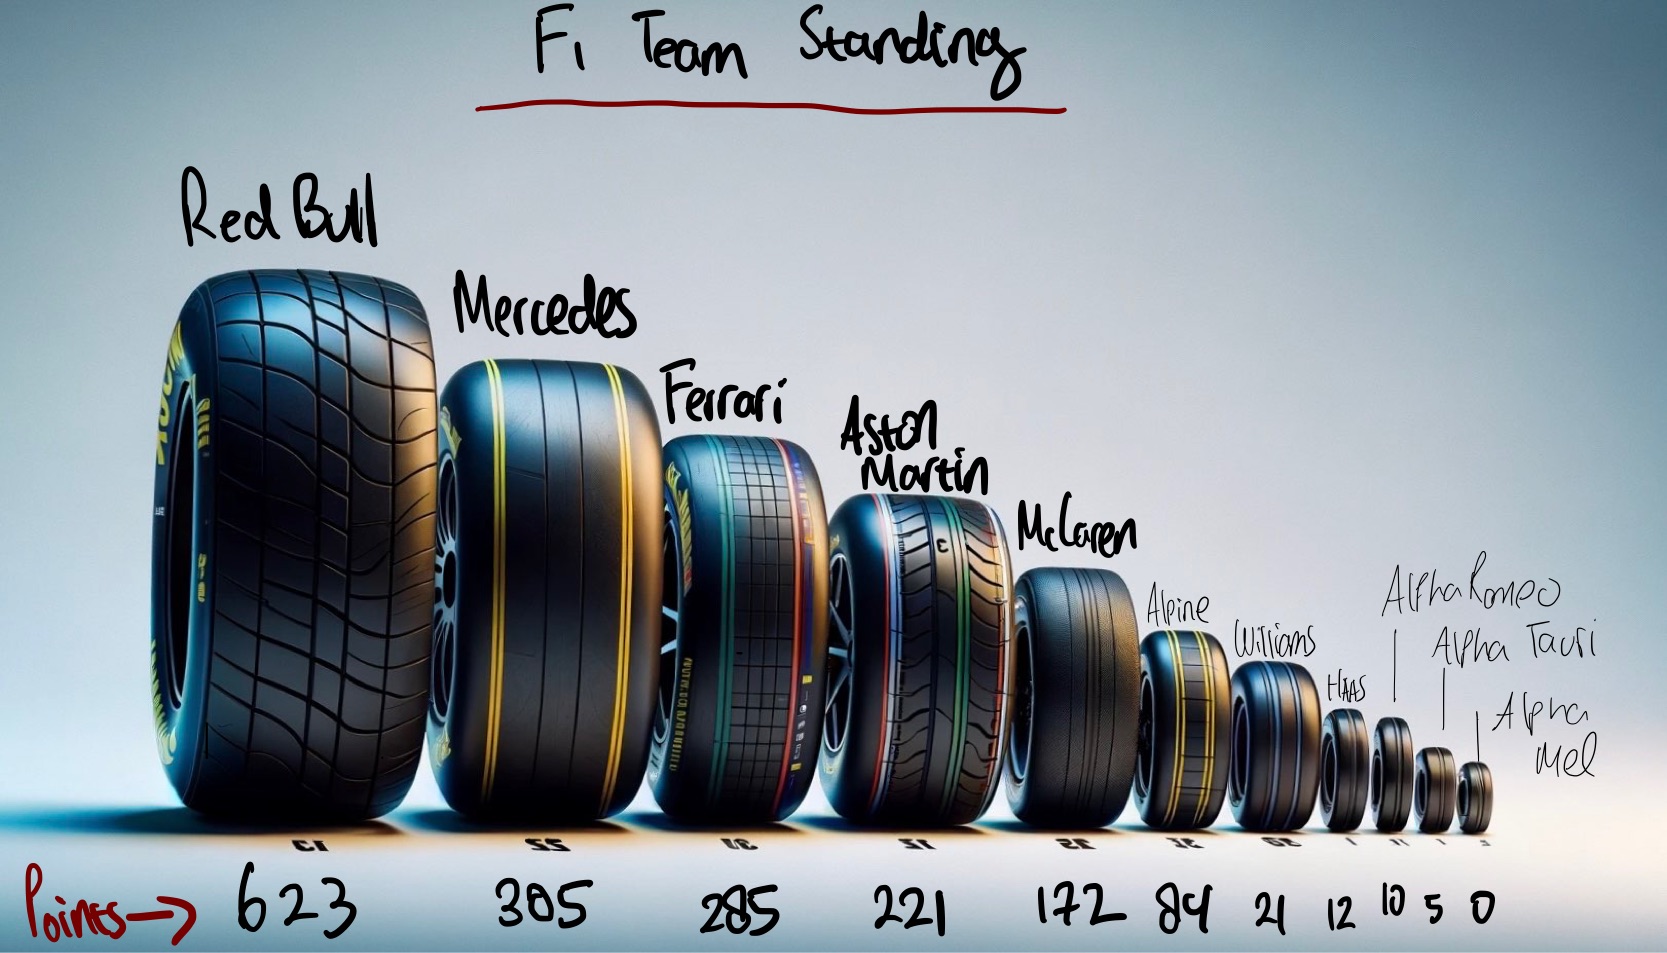 F1 Team Standing
Red Bull
Mercedes
Ferrari
Aston
Martin
McLaren
Alpine
Williams
HAAS
Alpha Romeo
Alpha Tauri
Alpha
Mel
Points → 623 305 285 221 172 84 21 12 10 5 0